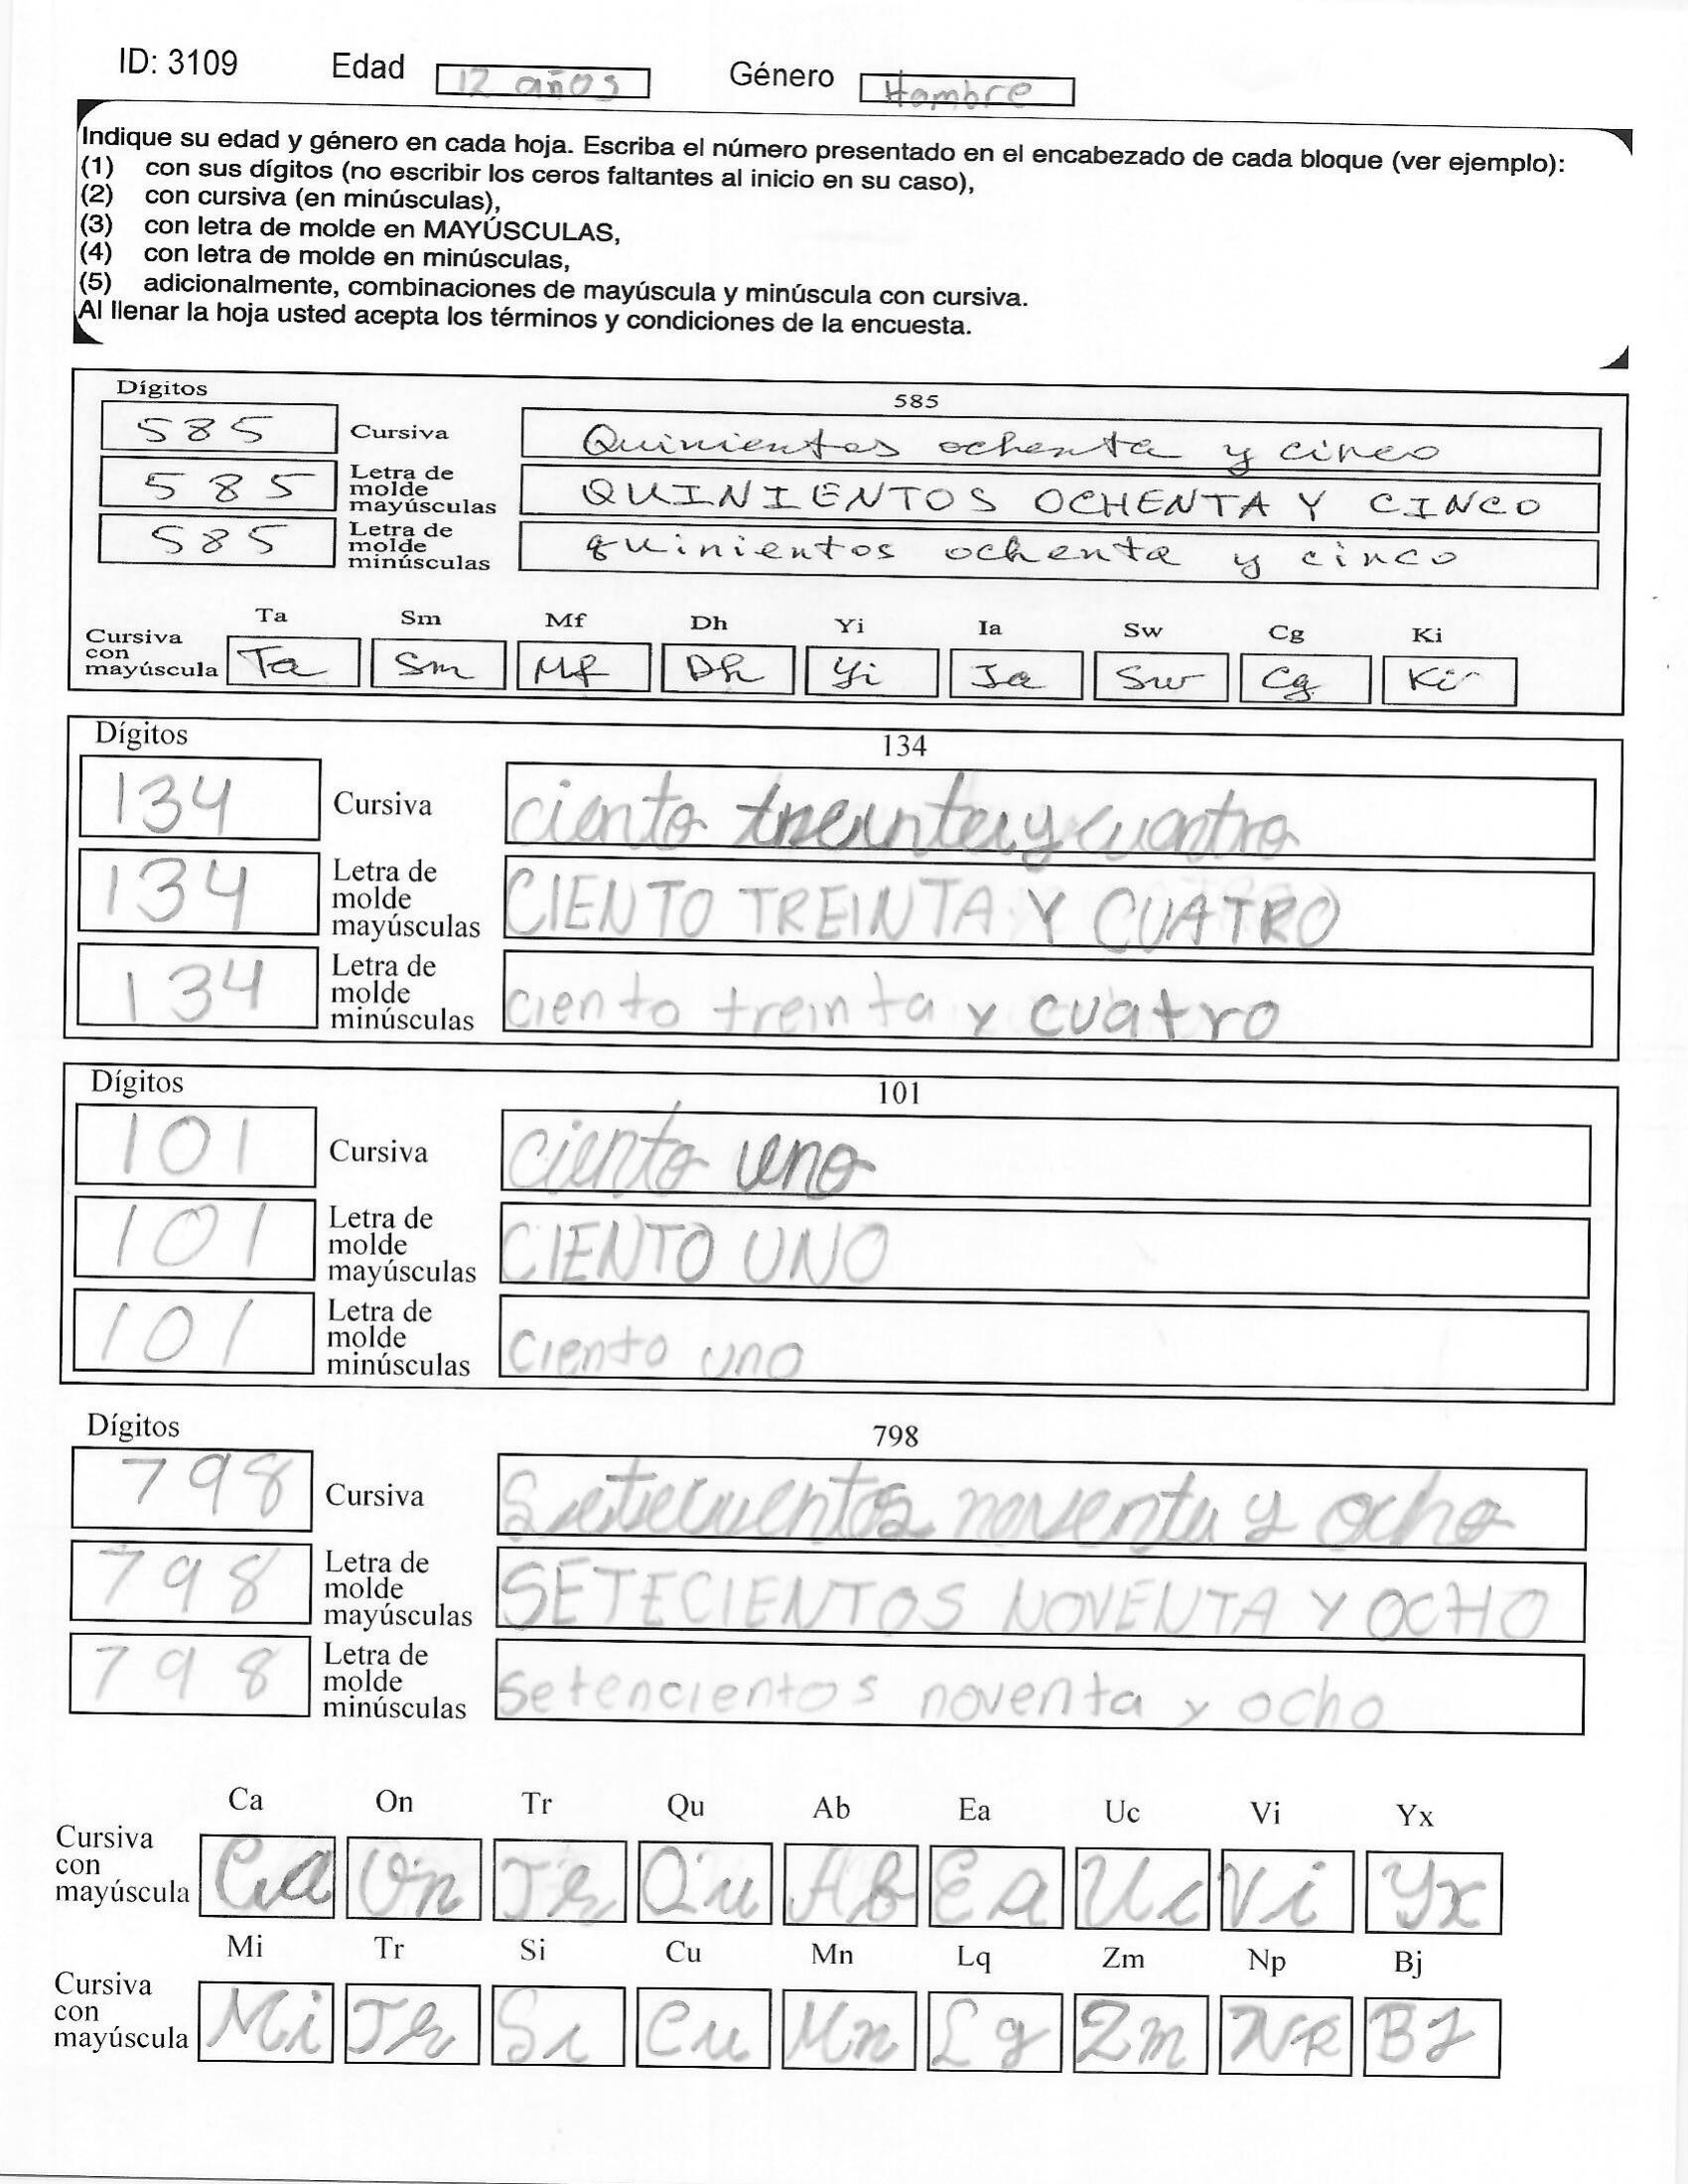 ID: 3109 Edad 12 años Género Hombre
Indique su edad y género en cada hoja. Escriba el número presentado en el encabezado de cada bloque (ver ejemplo):
(1) con sus dígitos (no escribir los ceros faltantes al inicio en su caso),
(2) con cursiva (en minúsculas),
(3) con letra de molde en MAYÚSCULAS,
(4) con letra de molde en minúsculas,
(5) adicionalmente, combinaciones de mayúscula y minúscula con cursiva.
Al llenar la hoja usted acepta los términos y condiciones de la encuesta.
Dígitos 585
585 Cursiva Quinientos ochenta y cinco
585 Letra de molde mayúsculas QUINIENTOS OCHENTA Y CINCO
585 Letra de molde minúsculas quinientos ochenta y cinco
Ta Sm Mf Dh Yi Ia Sw Cg Ki
Cursiva con mayúscula Ta Sm Mf Dh Yi Ia Sw Cg Ki
Dígitos 134
134 Cursiva ciento treinta y cuatro
134 Letra de molde mayúsculas CIENTO TREINTA Y CUATRO
134 Letra de molde minúsculas ciento treinta y cuatro
Dígitos 101
101 Cursiva ciento uno
101 Letra de molde mayúsculas CIENTO UNO
101 Letra de molde minúsculas ciento uno
Dígitos 798
798 Cursiva Setecientos noventa y ocho
798 Letra de molde mayúsculas SETECIENTOS NOVENTA Y OCHO
798 Letra de molde minúsculas Setencientos noventa y ocho
Ca On Tr Qu Ab Ea Uc Vi Yx
Cursiva con mayúscula Ca On Tr Qu Ab Ea Uc Vi Yx
Mi Tr Si Cu Mn Lq Zm Np Bj
Cursiva con mayúscula Mi Tr Si Cu Mn Lq Zm Np BJ